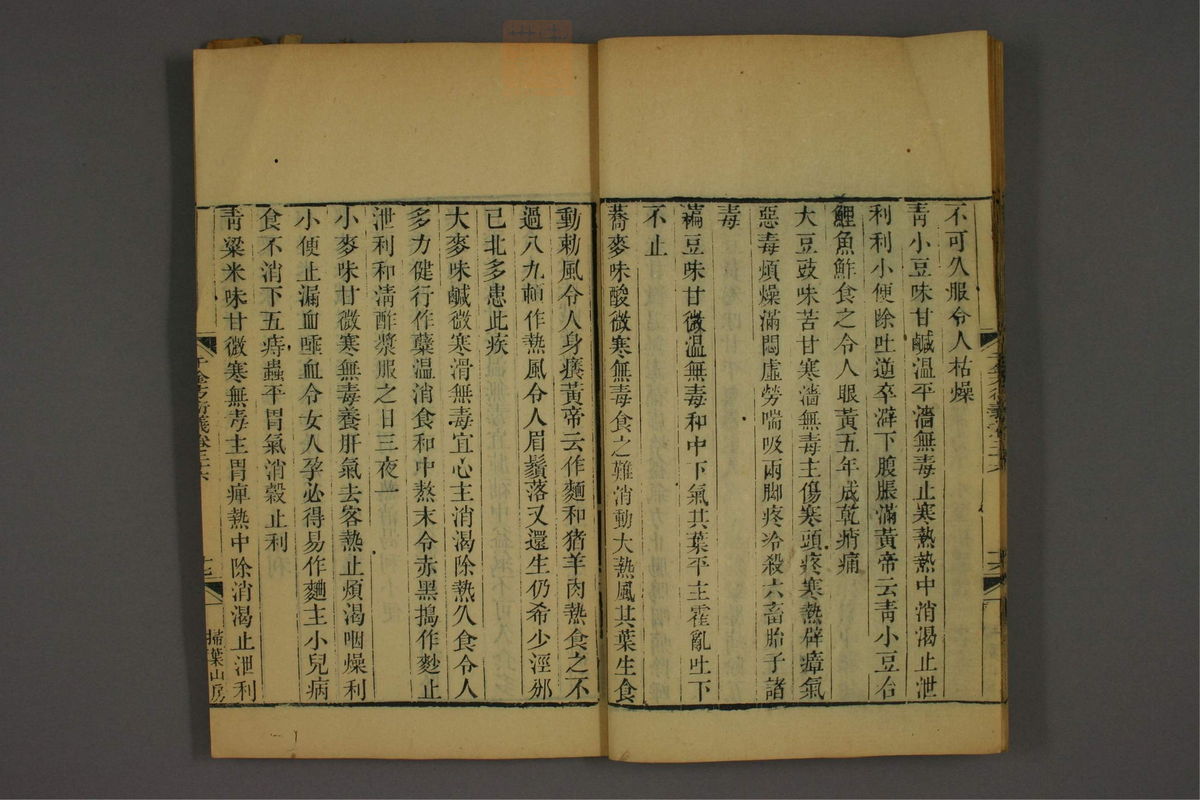 不可久服令人枯燥
靑小豆味甘鹹溫平濇無毒止寒熱熱中消渴止泄
利利小便除吐逆卒澼下腹脹滿黃帝云靑小豆合
鯉魚鮓食之令人眼黃五年成乾痟痛
大豆豉味苦甘寒濇無毒主傷寒頭疼寒熱辟瘴氣
惡毒煩燥滿悶虛勞喘吸兩脚疼冷殺六畜胎子諸
毒
藊豆味甘微溫無毒和中下氣其葉平主霍亂吐下
不止
蕎麥味酸微寒無毒食之難消動大熱風其葉生食
動刺風令人身癢黃帝云作麵和猪羊肉熱食之不
過八九頓作熱風令人眉鬚落又還生仍希少涇邠
已北多患此疾
大麥味鹹微寒滑無毒宜心主消渴除熱久食令人
多力健行作蘖溫消食和中熬末令赤黑搗作麨止
泄利和淸酢漿服之日三夜一
小麥味甘微寒無毒養肝氣去客熱止煩渴咽燥利
小便止漏血唾血令女人孕必得易作麵主小兒病
食不消下五痔蟲平胃氣消穀止利
靑粱米味甘微寒無毒主胃痺熱中除消渴止泄利
千金方衍義卷二十六
掃葉山房